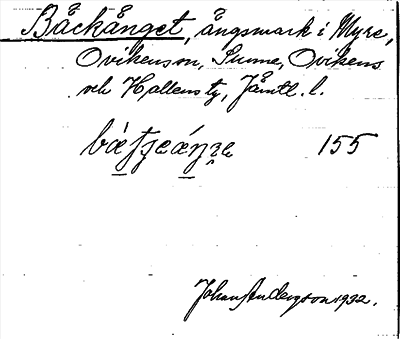 Bäckänget, ängsmark i Myre,
Ovikens sn, Sunne, Ovikens
och Hallens tg, Jämtl. l.
155
Johan Anderzon 1932.